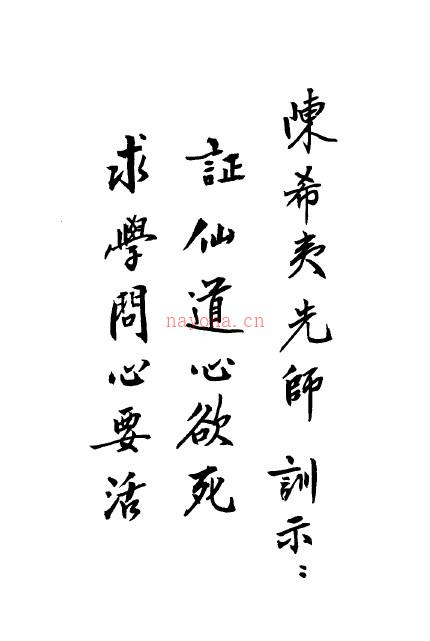 陳希夷先師訓示：
証仙道心欲死
求學問心要活
nayona.cn